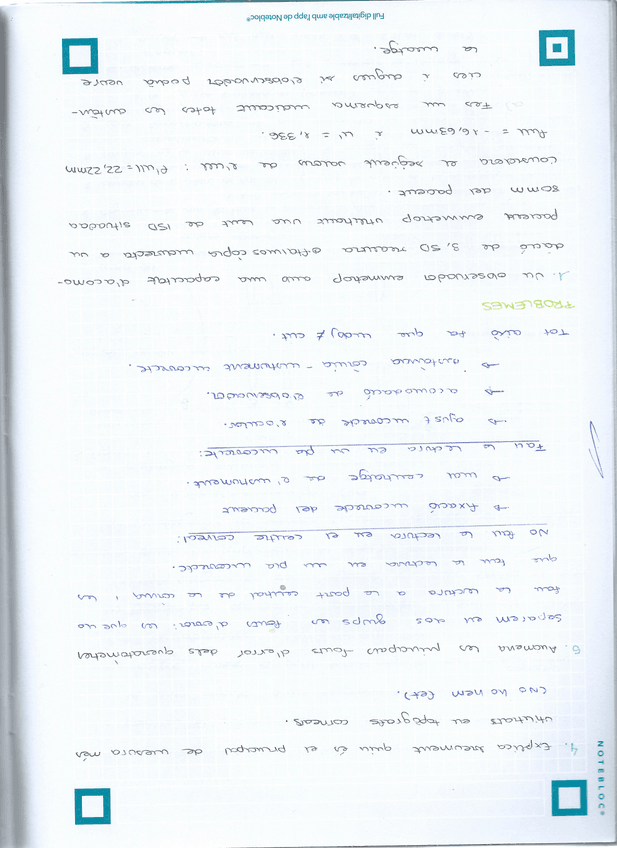 NOTEBLOC®
4. Explica breument quin és el principi de mesura més
utilitzats en topògrafs corneals.
(No ho hem fet).
6. Anomena les principals fonts d'error dels queratòmetres
Separem en dos grups les fonts d'error: les que no
fan la lectura a la part central de la còrnia i les
que fan la lectura en un pla incorrecte.
No fan la lectura en el centre corneal:
→ fixació incorrecte del pacient
→ mal centratge de l'instrument.
Fan la lectura en un pla incorrecte:
→ ajust incorrecte de l'ocular.
→ acomodació de l'observador.
→ distància còrnia - instrument incorrecte.
Tot això fa que
PROBLEMES
1. Un observador emmetrop amb una capacitat d'acomo-
dació de 3,5D realitza oftalmoscòpia indirecta a un
pacient emmetrop utilitzant una lent de 15D situada
80mm del pacient.
Considera el següent valors de l'ull: f'ull = 22,22mm
full = -16,63mm i n' = 1,336.
a) Fes un esquema indicant totes les distàn-
cies i digues si l'observador podrà veure
la imatge.
Full digitalitzable amb l'app de Notebloc®